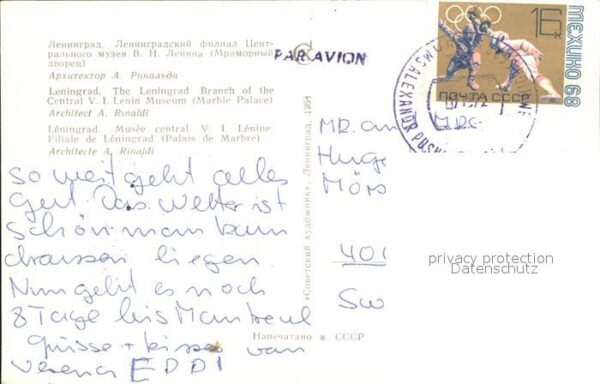 Ленинград. Ленинградский филиал Цент-
рального музея В. И. Ленина (Мраморный
дворец)
Архитектор А. Ринальди
Leningrad. The Leningrad Branch of the
Central V. I. Lenin Museum (Marble Palace)
Architect A. Rinaldi
Léningrad. Musée central V. I. Lénine
Filiale de Léningrad (Palais de Marbre)
Architecte A. Rinaldi
so weit geht alles
gut. Das Wetter ist
schön man kann
draussen liegen.
Nun geht es noch
8 Tage bis Montreal
grüsse + kisses von
verena EDDI
PAR AVION
«Советский художник», Ленинград, 1968
Напечатано в СССР
16 к
МЕХИКО 68
ПОЧТА СССР
ALEXANDR PUSHKIN
MR. and MRS
Huge
Mörs
401
Sw
privacy protection
Datenschutz